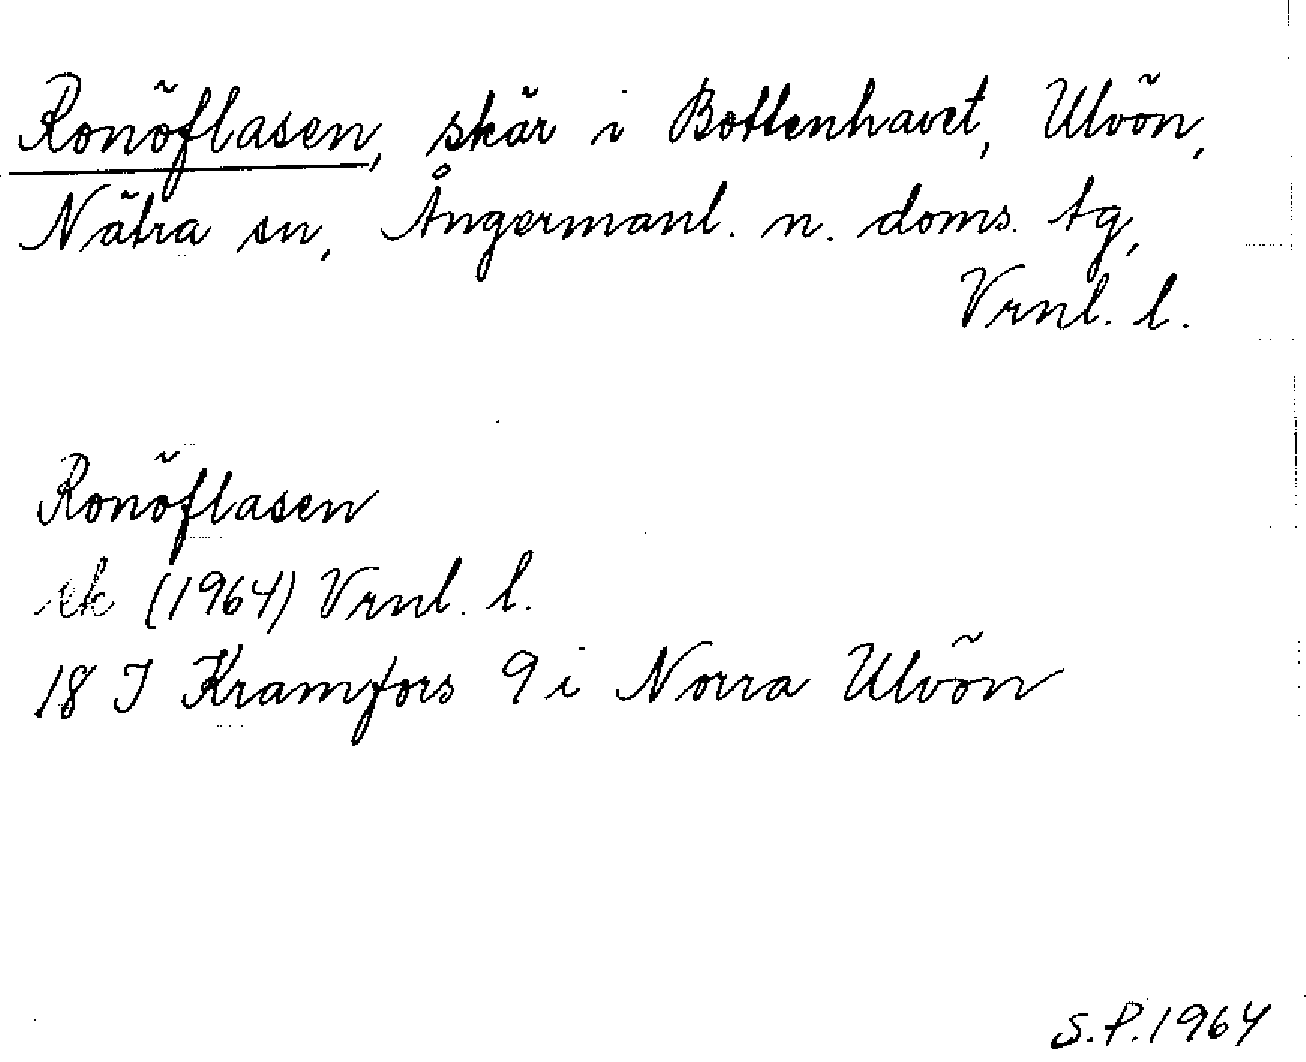 Ronöflasen, skär i Bottenhavet, Ulvön,
Nätra sn, Ångermanl. n. doms. tg,
Vrnl. l.
Ronöflasen
ek (1964) Vrnl. l.
18 I Kramfors 9 i Norra Ulvön
S.P. 1964